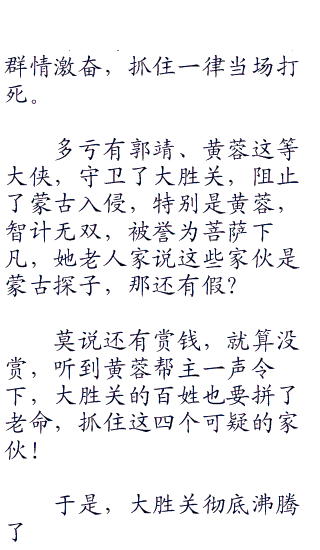 群情激奋，抓住一律当场打
死。
多亏有郭靖、黄蓉这等
大侠，守卫了大胜关，阻止
了蒙古入侵，特别是黄蓉，
智计无双，被誉为菩萨下
凡，她老人家说这些家伙是
蒙古探子，那还有假？
莫说还有赏钱，就算没
赏，听到黄蓉帮主一声令
下，大胜关的百姓也要拼了
老命，抓住这四个可疑的家
伙！
于是，大胜关彻底沸腾
了